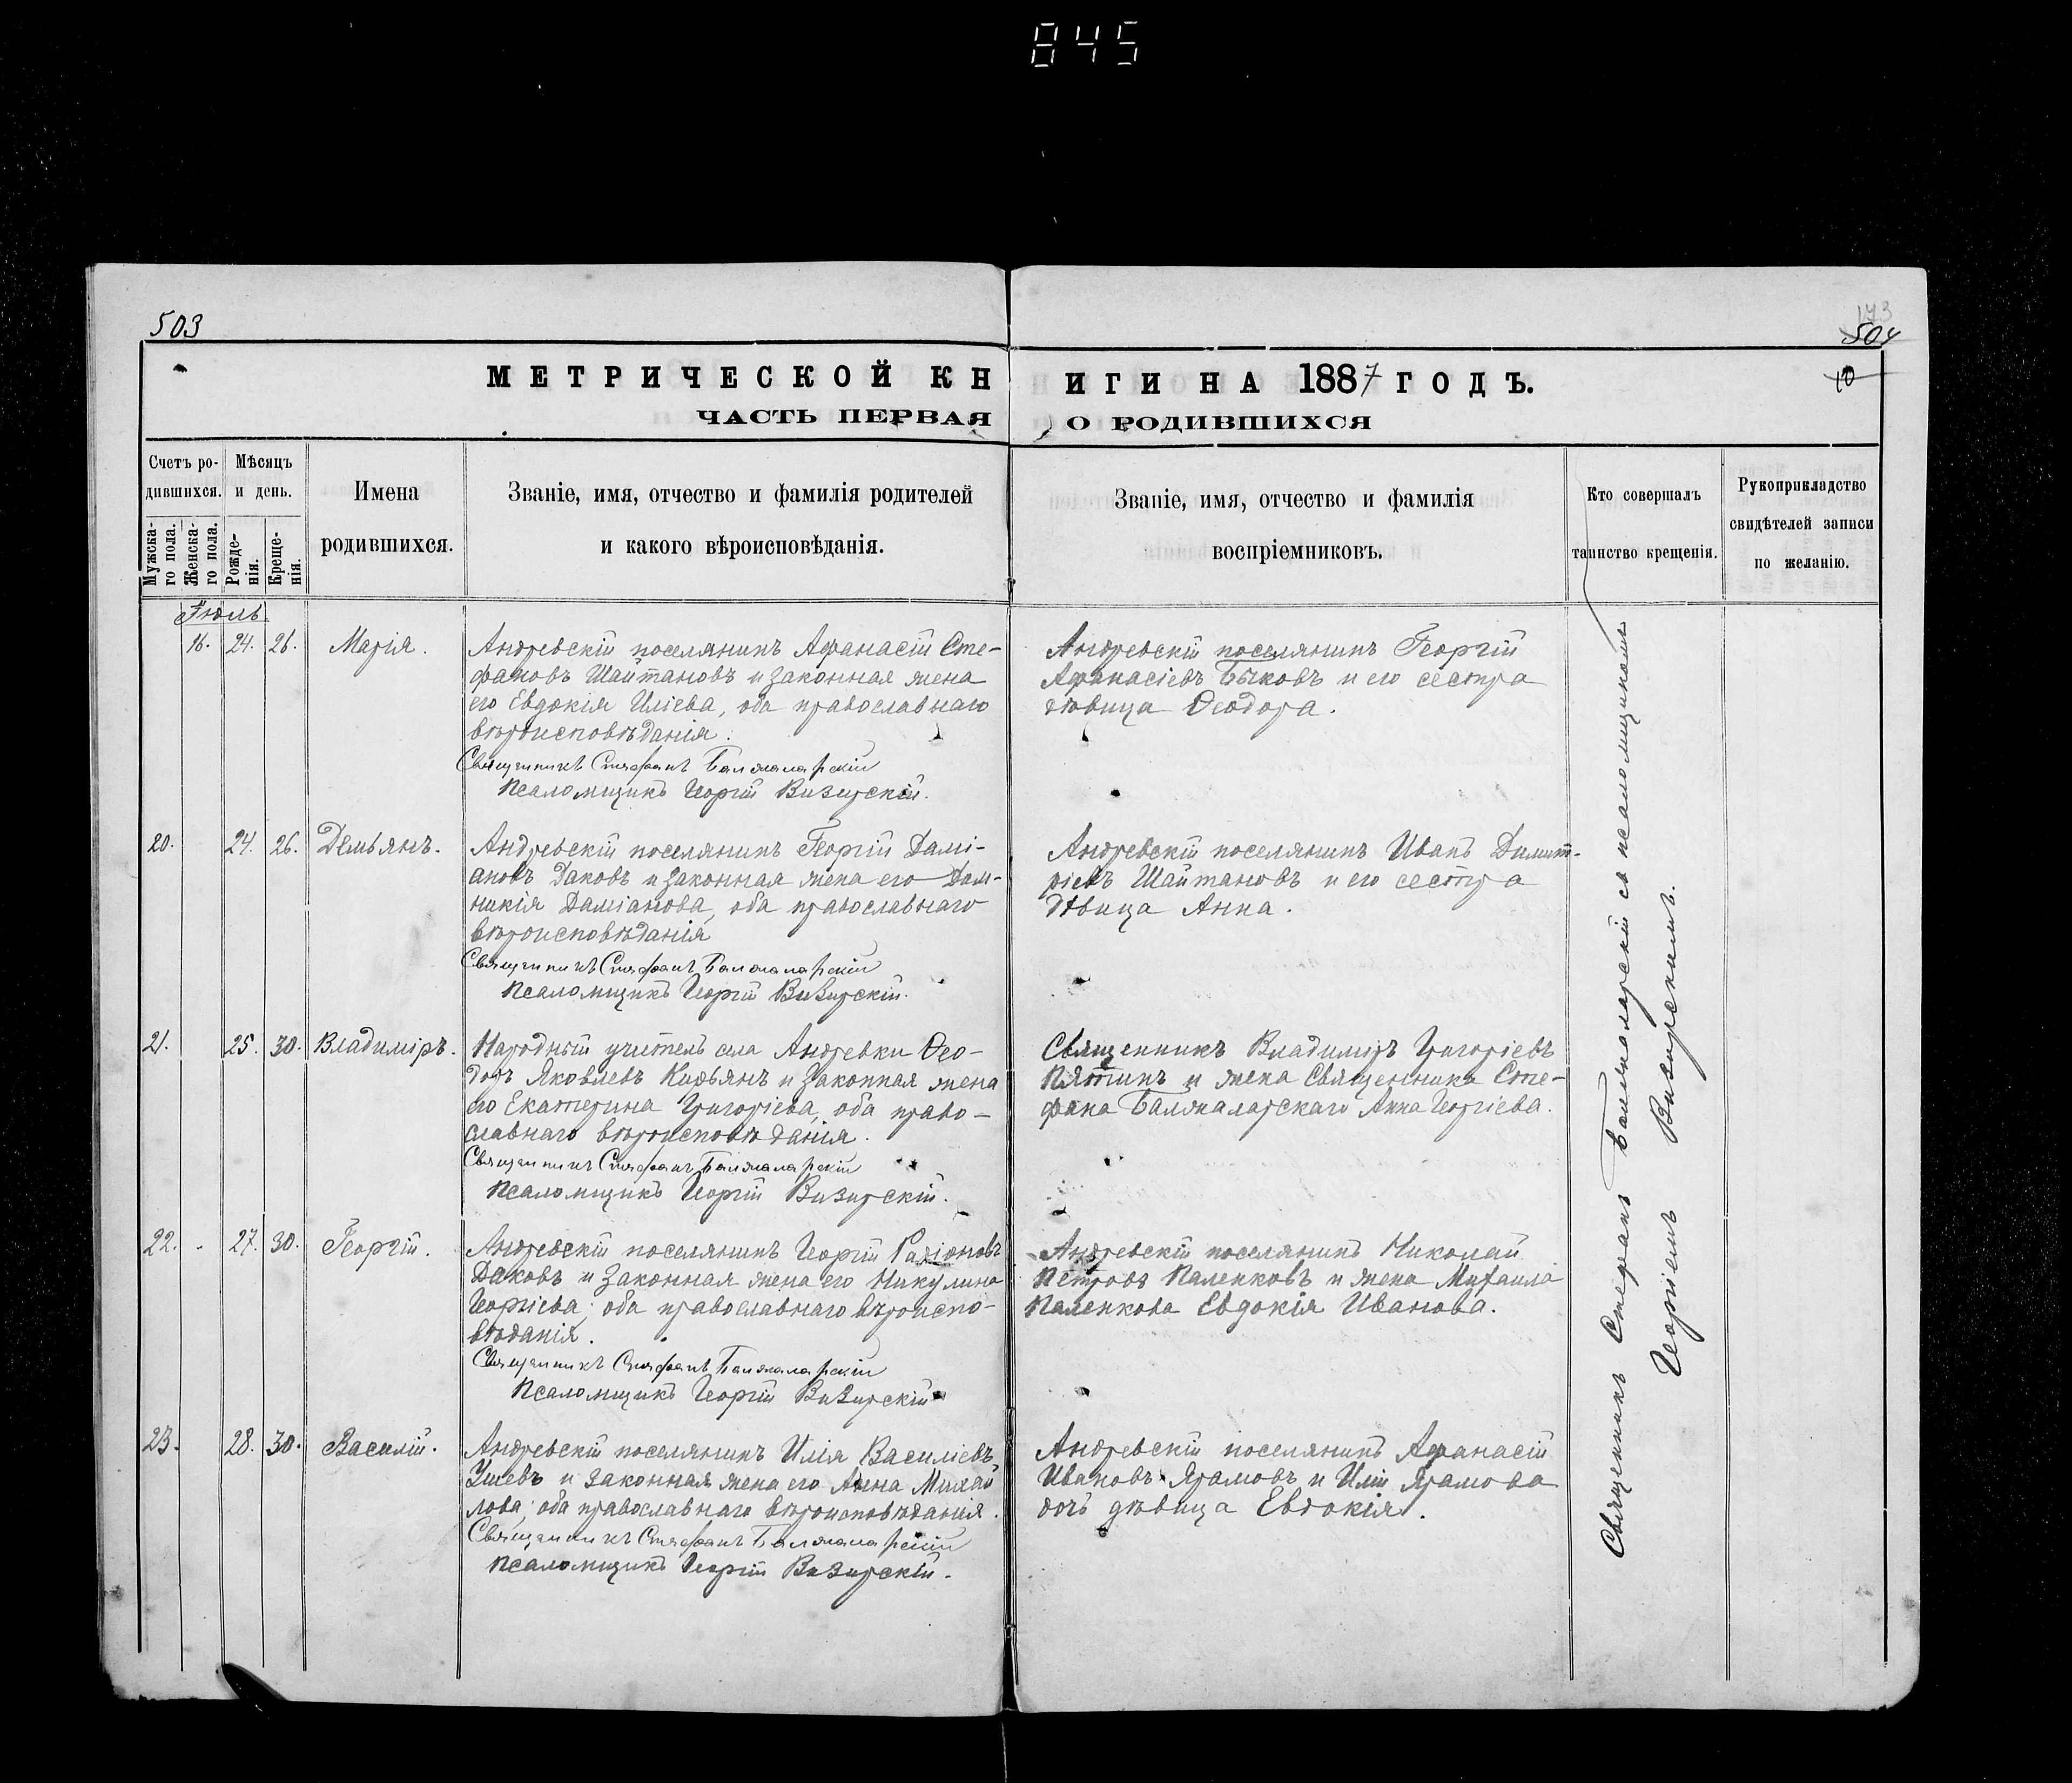 845
503
173
504
10
МЕТРИЧЕСКОЙ КНИГИ НА 1887 ГОДЪ.
ЧАСТЬ ПЕРВАЯ О РОДИВШИХСЯ
Счетъ ро-
дившихся.
Мужска-
го пола.
Женска-
го пола.
Мѣсяцъ
и день.
Рожде-
нія.
Креще-
нія.
Имена
родившихся.
Званіе, имя, отчество и фамилія родителей
и какого вѣроисповѣданія.
Званіе, имя, отчество и фамилія
воспріемниковъ.
Кто совершалъ
таинство крещенія.
Рукоприкладство
свидѣтелей записи
по желанію.
Іюль
16. 24. 26. Марія.
Андревскій поселянинъ Афанасій Сте-
фановъ Шайтановъ и законная жена
его Евдокія Иліева, оба православнаго
вѣроисповѣданія.
Священникъ Стефанъ Балжаларскій
Псаломщикъ Георгій Визирскій.
Андревскій поселянинъ Георгій
Афанасіевъ Бычковъ и его сестра
дѣвица Ѳеодора.
20. 24. 26. Демьянъ.
Андревскій поселянинъ Георгій Дамі-
ановъ Даковъ и законная жена его Дом-
никія Даміанова, оба православнаго
вѣроисповѣданія
Священникъ Стефанъ Балжаларскій
Псаломщикъ Георгій Визирскій.
Андревскій поселянинъ Иванъ Димит-
ріевъ Шайтановъ и его сестра
дѣвица Анна.
21. 25. 30. Владиміръ.
Народный учитель села Андревки Ѳео-
доръ Яковлевъ Кифьянъ и законная жена
его Екатерина Григоріева, оба право-
славнаго вѣроисповѣданія.
Священникъ Стефанъ Балжаларскій
Псаломщикъ Георгій Визирскій.
Священникъ Владиміръ Григоріевъ
Пятинъ и жена священника Сте-
фана Балжаларскаго Анна Георгіева.
22. 27. 30. Георгій.
Андревскій поселянинъ Георгій Радіоновъ
Даковъ и законная жена его Никулина
Георгіева, оба православнаго вѣроиспо-
вѣданія.
Священникъ Стефанъ Балжаларскій
Псаломщикъ Георгій Визирскій
Андревскій поселянинъ Николай
Петровъ Паленковъ и жена Михаила
Паленкова Евдокія Иванова.
23. 28. 30. Василій.
Андревскій поселянинъ Илія Василіевъ
Узневъ и законная жена его Анна Михай
лова, оба православнаго вѣроисповѣданія.
Священникъ Стефанъ Балжаларскій
Псаломщикъ Георгій Визирскій.
Андревскій поселянинъ Афанасій
Ивановъ Ярамовъ и Иліи Ярамова
дочь дѣвица Евдокія.
Священникъ Стефанъ Балжаларскій съ псаломщикомъ
Георгіемъ Визирскимъ.